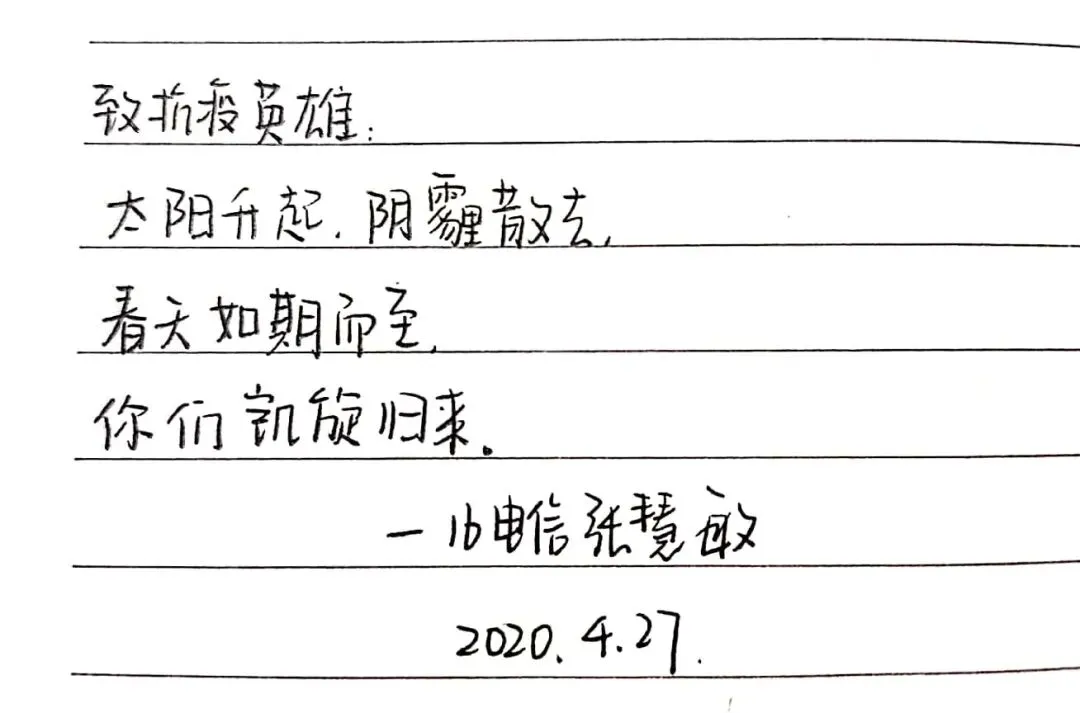 致抗疫英雄:
太阳升起.阴霾散去,
春天如期而至,
你们凯旋归来.
—16电信张慧敏
2020.4.27.